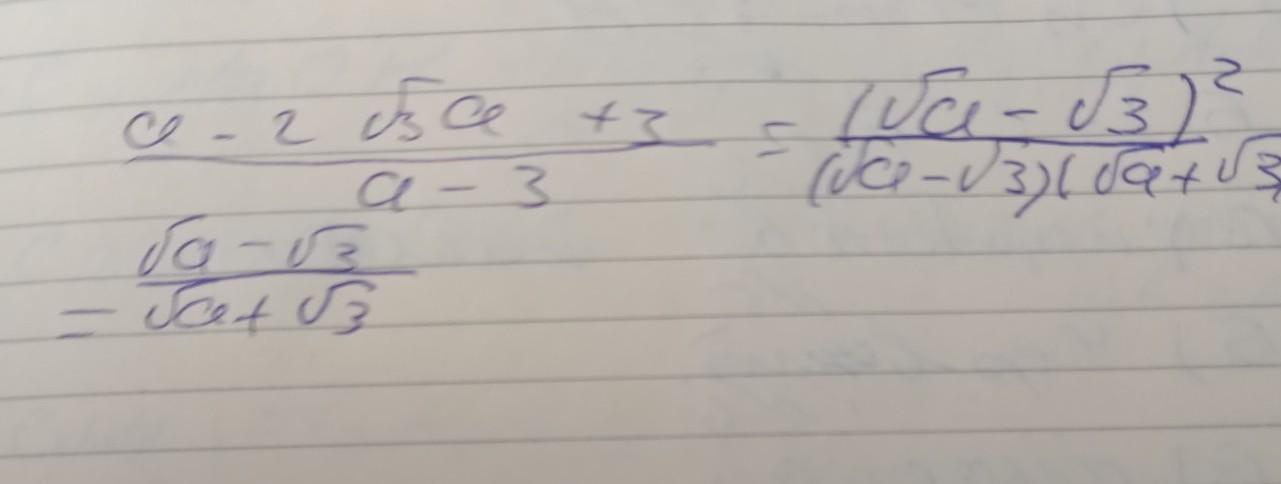 (a - 2 √3a + 3)/(a - 3) = (√a - √3)²/((√a - √3)(√a + √3
= (√a - √3)/(√a + √3)